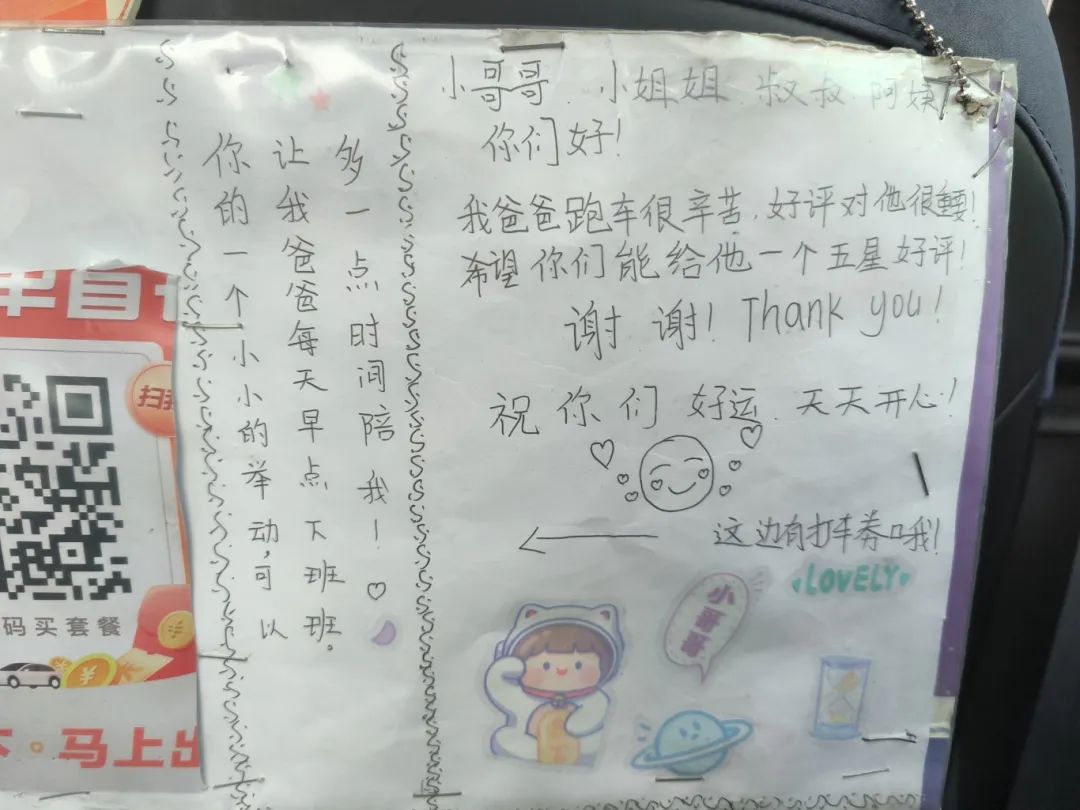 小哥哥、小姐姐、叔叔、阿姨
你们好!
我爸爸跑车很辛苦,好评对他很重要!
希望你们能给他一个五星好评!
谢谢! Thank you!
祝你们好运、天天开心!
这边有打车券哦!
LOVELY
小哥哥
你的一个小小的举动,可以
让我爸爸每天早点下班班。
多一点时间陪我!
扫
码买套餐
马上出